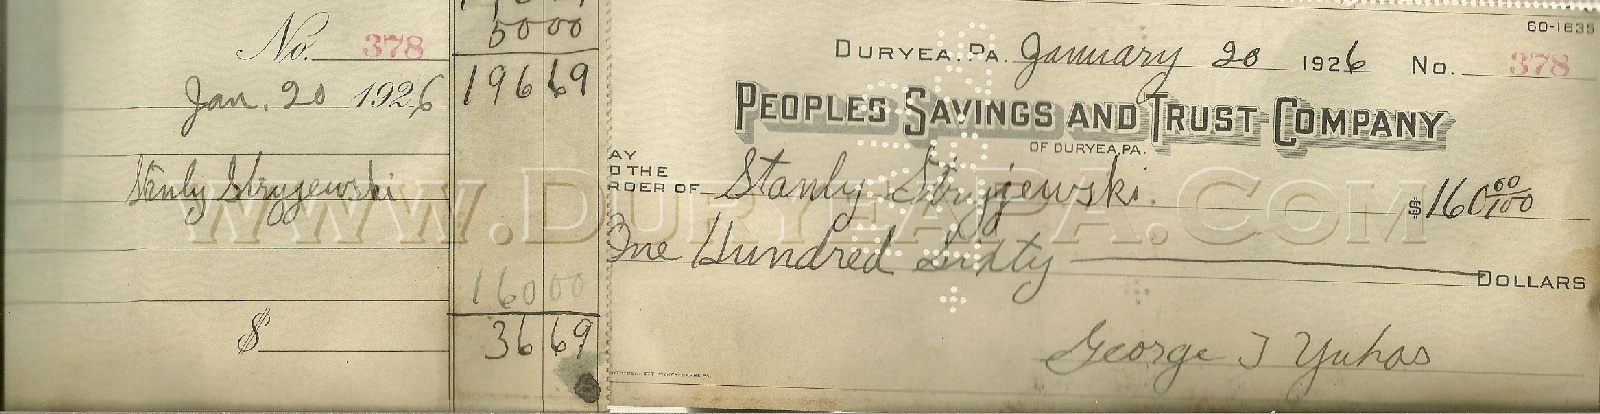 50 00
No. 378
196 69
Jan. 20 1926
Stanly Stryjewski
160 00
$ 36 69
60-1635
DURYEA, PA. January 20 1926 No. 378
PEOPLES SAVINGS AND TRUST COMPANY
OF DURYEA, PA.
AY
O THE
RDER OF Stanly Stryjewski $ 160 00/100
One Hundred Sixty DOLLARS
George J Yuhas
WWW.DURYEAPA.COM